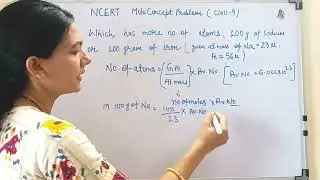 NCERT Mole Concept Problem (Class-9)
Which has more no. of atoms, 100g of Sodium
or 100 gram of iron (given atomic mass of Na = 23u,
Fe = 56u)
No. of atoms = (G.M / At.mass) × Av.No [Av.No = 6.022×10²³]
no. of moles × Av.No
in 100g of Na = 100/23 × Av.No